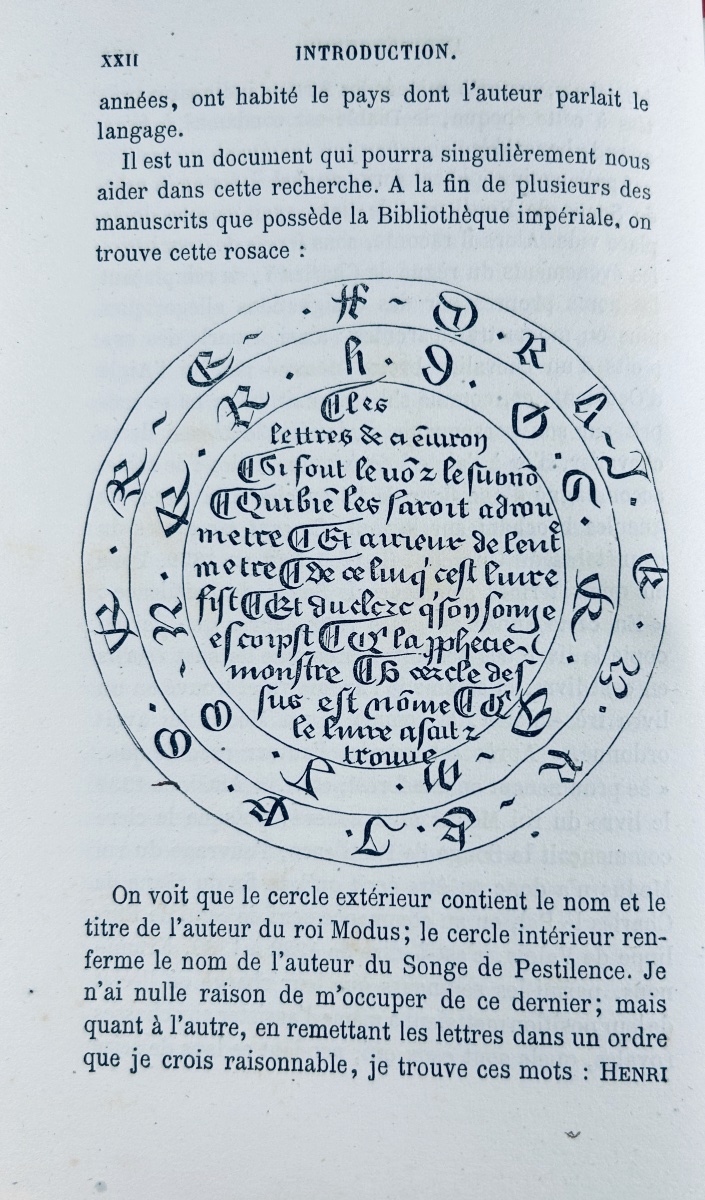 XXII INTRODUCTION.
années, ont habité le pays dont l'auteur parlait le
langage.
Il est un document qui pourra singulièrement nous
aider dans cette recherche. A la fin de plusieurs des
manuscrits que possède la Bibliothèque impériale, on
trouve cette rosace :
les
lettres & ci ẽuiron
Si font le uõ z le surnõ
Qui biẽ les saroit a drou
metre Et arrieur de lent
metre de ce luiq' cest liure
fist Et du clerc q' son songe
escripst la
monstre cercle des
sus est nõme
le liure a fait z
trouue
On voit que le cercle extérieur contient le nom et le
titre de l'auteur du roi Modus; le cercle intérieur ren-
ferme le nom de l'auteur du Songe de Pestilence. Je
n'ai nulle raison de m'occuper de ce dernier; mais
quant à l'autre, en remettant les lettres dans un ordre
que je crois raisonnable, je trouve ces mots : HENRI